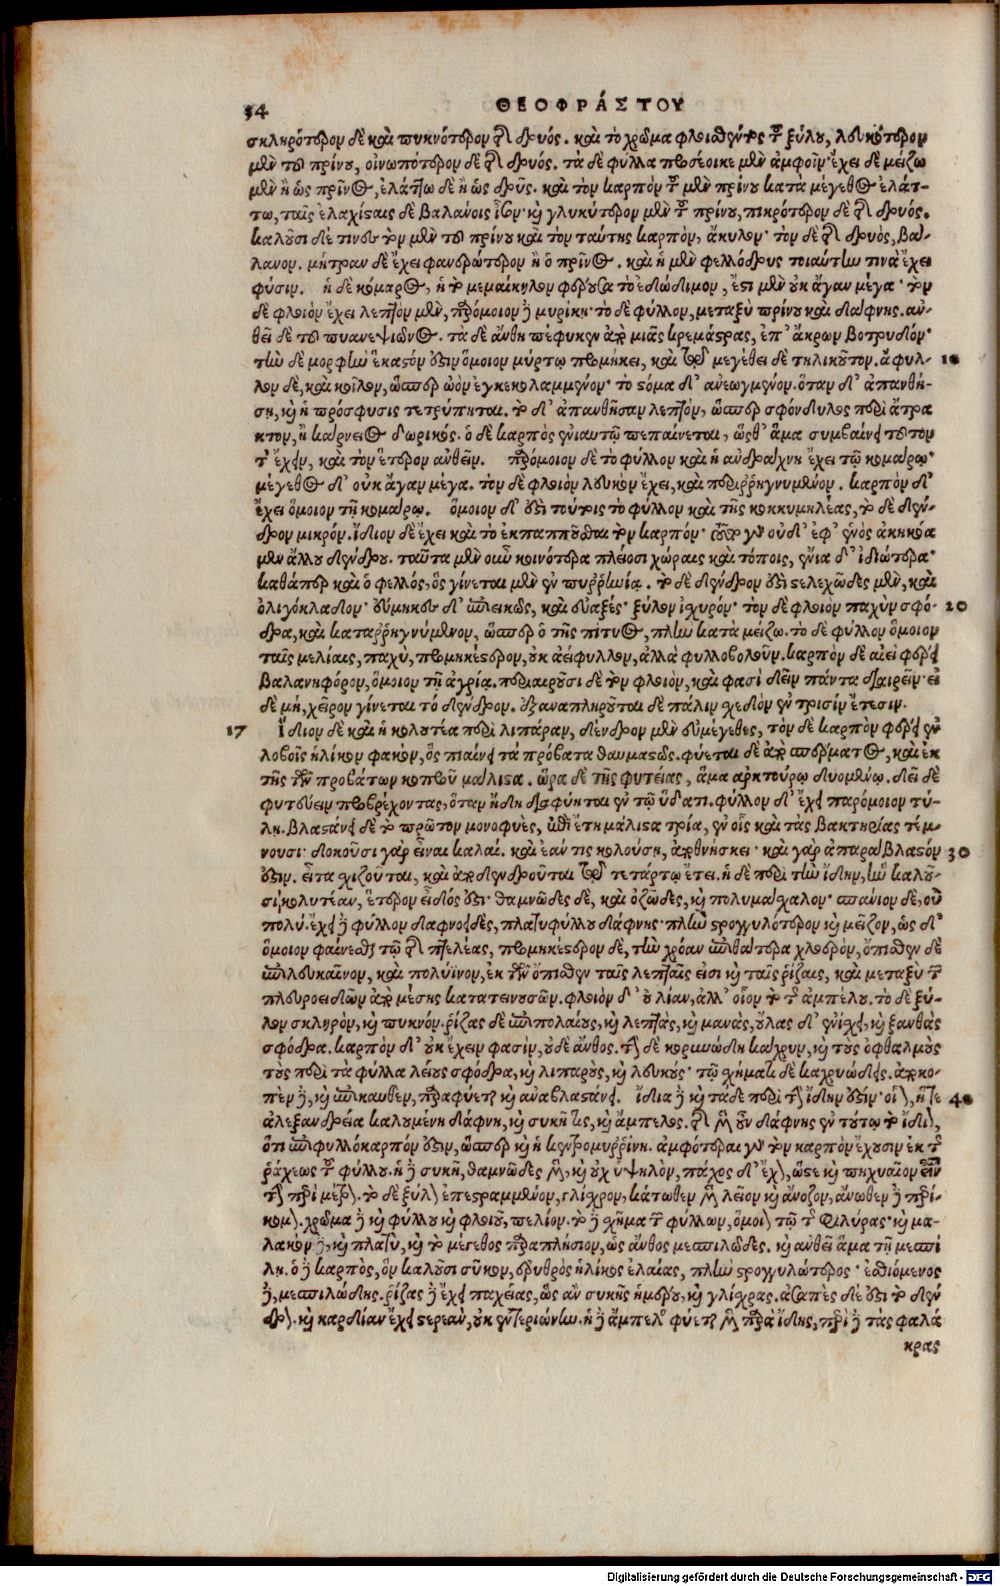 34
ΘΕΟΦΡΆΣΤΟΥ
σκληρότερον δὲ καὶ πυκνότερον τῆς δρυός. καὶ τὸ χρῶμα φλοισθέντος τοῦ ξύλου, λευκότερον
μὲν τοῦ πρίνου, οἰνωπότερον δὲ τῆς δρυός. τὰ δὲ φύλλα προσέοικε μὲν ἀμφοῖν· ἔχει δὲ μείζω
μὲν ἢ ὡς πρῖνος, ἐλάττω δὲ ἢ ὡς δρῦς. καὶ τὸν καρπὸν τοῦ μὲν πρίνου κατὰ μέγεθος ἐλάτ-
τω, ταῖς ἐλαχίσαις δὲ βαλάνοις ἶσον· καὶ γλυκύτερον μὲν τοῦ πρίνου, πικρότερον δὲ τῆς δρυός.
καλοῦσι δέ τινες τὸν μὲν τοῦ πρίνου καὶ τὸν ταύτης καρπὸν, ἄκυλον· τὸν δὲ τῆς δρυὸς, βα-
λανον. μήτραν δὲ ἔχει φανερώτερον ἢ ὁ πρῖνος. καὶ ἡ μὲν φελλόδρυς τοιαύτην τινὰ ἔχει
φύσιν. ἡ δὲ κόμαρος, ἡ τὸ μεμαίκυλον φέρουσα τὸ ἐδώδιμον, ἔςι μὲν οὐκ ἄγαν μέγα· τὸν
δὲ φλοιὸν ἔχει λεπτὸν μὲν, παρόμοιον δὲ μυρίκῃ· τὸ δὲ φύλλον, μεταξὺ πρίνου καὶ δάφνης. ἀν-
θεῖ δὲ τοῦ πυανεψιῶνος. τὰ δὲ ἄνθη πέφυκεν ἀπὸ μιᾶς κρεμάςρας, ἐπ' ἄκρων βοτρυδόν·
τὴν δὲ μορφὴν ἕκαςόν ἐςιν ὅμοιον μύρτῳ προμήκει, καὶ τῷ μεγέθει δὲ τηλικοῦτον. ἄφυλ- 10
λον δὲ, καὶ κοῖλον, ὥσπερ ὠὸν ἐγκεκολαμμένον· τὸ ςόμα δ' ἀνεωγμένον. ὅταν δ' ἀπανθή-
σῃ, καὶ ἡ πρόσφυσις τετρύπηται. τὸ δ' ἀπανθῆσαν λεπτὸν, ὥσπερ σφόνδυλος περὶ ἄτρα
κτον, ἢ κάρνειος δωρικός. ὁ δὲ καρπὸς ἐνιαυτῷ πεπαίνεται, ὥσθ' ἅμα συμβαίνει τοῦτον
τ' ἔχειν, καὶ τὸν ἕτερον ἀνθεῖν. παρόμοιον δὲ τὸ φύλλον καὶ ἡ ἀνδράχνη ἔχει τῷ κομάρῳ·
μέγεθος δ' οὐκ ἄγαν μέγα. τὸν δὲ φλοιὸν λευκὸν ἔχει, καὶ περιῤῥηγνυμένον. καρπὸν δ'
ἔχει ὅμοιον τῇ κομάρῳ. ὅμοιον δ' ἐςὶ τούτοις τὸ φύλλον καὶ τῆς κοκκυμηλέας, τὸ δὲ δέν-
δρον μικρόν. ἴδιον δὲ ἔχει καὶ τὸ ἐκπαππουσθαι τὸν καρπόν· τοῦτο γὰρ οὐδ' ἐφ' ἑνὸς ἀκηκόα
μεν ἄλλου δένδρου. ταῦτα μὲν οὖν κοινότερα πλείοσι χώραις καὶ τόποις, ἔνια δ' ἰδιώτερα·
καθάπερ καὶ ὁ φελλός, ὃς γίνεται μὲν ἐν πυῤῥωνίᾳ. τὸ δὲ δένδρον ἐςὶ ςελεχῶδες μὲν, καὶ
ὀλιγόκλαδον· εὔμηκες δ' ἐπιεικῶς, καὶ εὐαξές· ξύλον ἰσχυρόν· τὸν δὲ φλοιὸν παχὺν σφό- 20
δρα, καὶ καταῤῥηγνύμενον, ὥσπερ ὁ τῆς πίτυος, πλὴν κατὰ μείζω. τὸ δὲ φύλλον ὅμοιον
ταῖς μελίαις, παχὺ, προμηκέςερον, οὐκ ἀείφυλλον, ἀλλὰ φυλλοβολοῦν. καρπὸν δὲ αἰεὶ φέρει
βαλανηφόρον, ὅμοιον τῇ ἀγρίᾳ. περιαιροῦσι δὲ τὸν φλοιὸν, καὶ φασὶ δεῖν πάντα διαιρεῖν· εἰ
δὲ μὴ, χεῖρον γίνεται τὸ δένδρον. ἐξαναπληροῦται δὲ πάλιν σχεδὸν ἐν τρισὶν ἔτεσιν.
17 Ἴδιον δὲ καὶ ἡ κολουτέα περὶ λιπάραν, δένδρον μὲν εὐμέγεθες, τὸν δὲ καρπὸν φέρει ἐν
λοβοῖς ἡλίκον φακὸν, ὃς πιαίνει τὰ πρόβατα θαυμαςῶς. φύεται δὲ ἀπὸ σπέρματος, καὶ ἐκ
τῆς τῶν προβάτων κόπρου μάλιςα. ὥρα δὲ τῆς φυτείας, ἅμα ἀρκτούρῳ δυομένῳ. δεῖ δὲ
φυτεύειν προβρέχοντας, ὅταν ἤδη διαφύηται ἐν τῷ ὕδατι. φύλλον δ' ἔχει παρόμοιον τή-
λῃ. βλαςάνει δὲ τὸ πρῶτον μονοφυὲς, ἐπὶ ἔτη μάλιςα τρία, ἐν οἷς καὶ τὰς βακτηρίας τέμ-
νουσι· δοκοῦσι γὰρ εἶναι καλαί. καὶ ἐάν τις κολούσῃ, ἀποθνήσκει· καὶ γὰρ ἀπαράβλαςόν 30
ἐςιν. εἶτα σχίζονται, καὶ ἀποδενδροῦται τῷ τετάρτῳ ἔτει. ἡ δὲ περὶ τὴν ἴδην, ἣν καλοῦ-
σι κολυτέαν, ἕτερον εἶδός ἐςι· θαμνῶδες δὲ, καὶ ὀζῶδες, καὶ πολυμάσχαλον· σπάνιον δὲ, οὐ
πολύ. ἔχει δὲ φύλλον δαφνοειδὲς, πλατυφύλλου δάφνης· πλὴν ςρογγυλότερον καὶ μεῖζον, ὡς δ'
ὅμοιον φαίνεσθαι τῷ τῆς πτελέας, προμηκέςερον δὲ, τὴν χρόαν ἐπὶ θάτερα χλωρὸν, ὄπισθεν δὲ
ἐπιλευκαῖνον, καὶ πολύϊνον, ἐκ τῶν ὄπισθεν ταῖς λεπταῖς εἰσι καὶ ταῖς ῥίζαις, καὶ μεταξὺ τῶν
πλευροειδῶν ἀπὸ μέσης κατατεινουσῶν. φλοιὸν δ' οὐ λίαν, ἀλλ' οἷον τὸ τῆς ἀμπέλου. τὸ δὲ ξύ-
λον σκληρὸν, καὶ πυκνόν. ῥίζας δὲ ἐπιπολαίους, καὶ λεπτὰς, καὶ μανὰς, οὔλας δ' ἐνίοτε, καὶ ξανθὰς
σφόδρα. καρπὸν δ' οὐκ ἔχειν φασὶν, οὐδὲ ἄνθος. τὴν δὲ κορυνώδη κάχρυν, καὶ τοὺς ὀφθαλμοὺς
τοὺς περὶ τὰ φύλλα λείους σφόδρα, καὶ λιπαροὺς, καὶ λευκούς· τῷ σχήματι δὲ καχρυώδεις. ἀποκο-
πὲν δὲ, καὶ ἐπικαυθὲν, παραφύεται καὶ ἀναβλαςάνει. ἴδια δὲ καὶ τάδε περὶ τὴν ἴδην ἐςίν· οἷον, ἥτε 40
ἀλεξανδρεία καλουμένη δάφνη, καὶ συκῆ τις, καὶ ἄμπελος. τῆς μὲν οὖν δάφνης ἐν τούτῳ τὸ ἴδιον,
ὅτι ἐπιφυλλόκαρπόν ἐςιν, ὥσπερ καὶ ἡ κεντρομυῤῥίνη. ἀμφότεραι γὰρ τὸν καρπὸν ἔχουσιν ἐκ τῆς
ῥάχεως τοῦ φύλλου. ἡ δὲ συκῆ, θαμνῶδες μὲν, καὶ οὐχ ὑψηλὸν, πάχος δ' ἔχον, ὥςε καὶ πηχυαῖον εἶναι
τὴν περίμετρον. τὸ δὲ ξύλον ἐπεςραμμένον, γλίσχρον, κάτωθεν μὲν λεῖον καὶ ἄνοζον, ἄνωθεν δὲ περί-
κομον. χρῶμα δὲ καὶ φύλλου καὶ φλοιοῦ, πελίον. τὸ δὲ σχῆμα τῶν φύλλων, ὅμοιον τῷ τῆς φιλύρας· καὶ μα-
λακὸν δὲ, καὶ πλατὺ, καὶ τὸ μέγεθος παραπλήσιον, ὡς ἄνθος μεσπιλῶδες. καὶ ἀνθεῖ ἅμα τῇ μεσπί
λῃ. ὁ δὲ καρπὸς, ὃν καλοῦσι σῦκον, ἐρυθρὸς ἡλίκος ἐλαίας, πλὴν ςρογγυλώτερος· ἐσθιόμενος
δὲ, μεσπιλώδης. ῥίζας δὲ ἔχει παχείας, ὡς ἂν συκῆς ἡμέρου, καὶ γλίσχρας. ἀσαπὲς δέ ἐςι τὸ δέν
δρον. καὶ καρδίαν ἔχει ςερεὰν, οὐκ ἐντεριώνην. ἡ δὲ ἄμπελος φύεται μὲν παρὰ ἴδης, περὶ δὲ τὰς φαλά
κρας
Digitalisierung gefördert durch die Deutsche Forschungsgemeinschaft - DFG